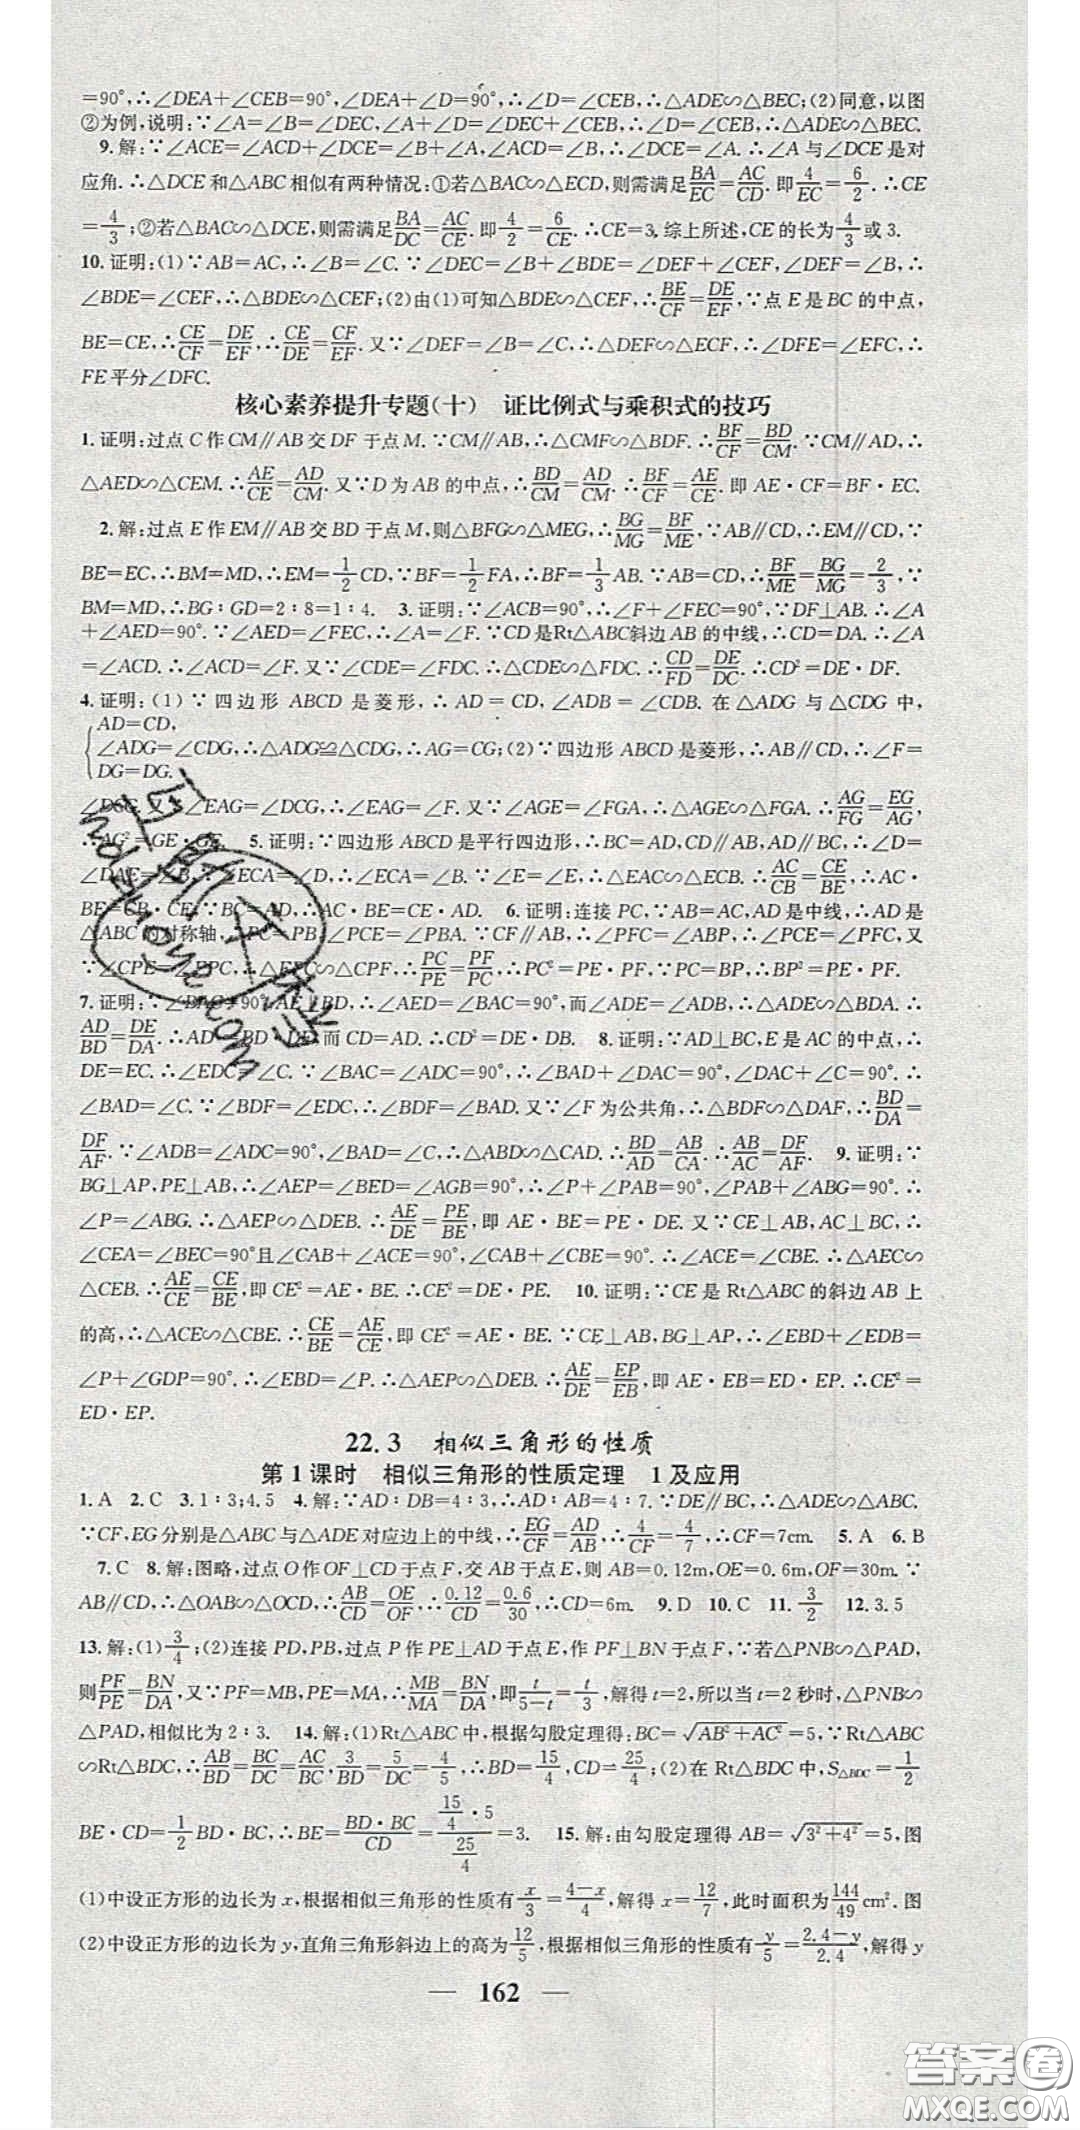 =90°,∴∠DEA+∠CEB=90°,∠DEA+∠D=90°,∴∠D=∠CEB,∴△ADE∽△BEC;(2)同意,以图
②为例,说明:∵∠A=∠B=∠DEC,∠A+∠D=∠DEC+∠CEB,∴∠D=∠CEB,∴△ADE∽△BEC.
9.解:∵∠ACE=∠ACD+∠DCE=∠B+∠A,∠ACD=∠B,∴∠DCE=∠A.∴∠A与∠DCE是对
应角.∴△DCE和△ABC相似有两种情况:①若△BAC∽△ECD,则需满足BA/EC=AC/CD.即4/EC=6/2.∴CE
=4/3;②若△BAC∽△DCE,则需满足BA/DC=AC/CE.即4/2=6/CE.∴CE=3.综上所述,CE的长为4/3或3.
10.证明:(1)∵AB=AC,∴∠B=∠C.∵∠DEC=∠B+∠BDE=∠DEF+∠CEF,∠DEF=∠B,∴
∠BDE=∠CEF,∴△BDE∽△CEF;(2)由(1)可知△BDE∽△CEF,∴BE/CF=DE/EF,∵点E是BC的中点,
BE=CE,∴CE/CF=DE/EF,∴CE/DE=CF/EF.又∵∠DEF=∠B=∠C,∴△DEF∽△ECF,∴∠DFE=∠EFC,∴
FE平分∠DFC.
核心素养提升专题(十) 证比例式与乘积式的技巧
1.证明:过点C作CM∥AB交DF于点M.∵CM∥AB,∴△CMF∽△BDF.∴BF/CF=BD/CM.∵CM∥AD,∴
△AED∽△CEM.∴AE/CE=AD/CM.又∵D为AB的中点,∴BD/CM=AD/CM.∴BF/CF=AE/CE.即AE·CF=BF·EC.
2.解:过点E作EM∥AB交BD于点M,则△BFG∽△MEG,∴BG/MG=BF/ME,∵AB∥CD,∴EM∥CD,∵
BE=EC,∴BM=MD,∴EM=1/2CD,∵BF=1/2FA,∴BF=1/3AB.∵AB=CD,∴BF/ME=BG/MG=2/3,∵
BM=MD,∴BG:GD=2:8=1:4. 3.证明:∵∠ACB=90°,∴∠F+∠FEC=90°,∵DF⊥AB.∴∠A
+∠AED=90°.∵∠AED=∠FEC,∴∠A=∠F.∵CD是Rt△ABC斜边AB的中线,∴CD=DA.∴∠A
=∠ACD.∴∠ACD=∠F.又∵∠CDE=∠FDC.∴△CDE∽△FDC.∴CD/FD=DE/DC.∴CD²=DE·DF.
4.证明:(1)∵四边形ABCD是菱形,∴AD=CD,∠ADB=∠CDB.在△ADG与△CDG中,
AD=CD,
∠ADG=∠CDG,∴△ADG≌△CDG,∴AG=CG;(2)∵四边形ABCD是菱形,∴AB∥CD,∴∠F=
DG=DG.
.又∵∠EAG=∠DCG,∴∠EAG=∠F.又∵∠AGE=∠FGA,∴△AGE∽△FGA.∴AG/FG=EG/AG,
∴AG²=GE· 5.证明:∵四边形ABCD是平行四边形,∴BC=AD,CD∥AB,AD∥BC,∴∠D=
∠DAE=∠B,∵∠ECA=∠D,∴∠ECA=∠B.∵∠E=∠E,∴△ECA∽△ECB.∴AC/CB=CE/BE,∴AC·
BE=CB·CE,∵BC=AD,∴AC·BE=CE·AD. 6.证明:连接PC,∵AB=AC,AD是中线,∴AD是
△ABC的对称轴,∴PC=PB,∠PCE=∠PBA.∵CF∥AB,∴∠PFC=∠ABP,∴∠PCE=∠PFC,又
∵∠CPE=∠EPC,∴△EPC∽△CPF,∴PC/PE=PF/PC,∴PC²=PE·PF,∵PC=BP,∴BP²=PE·PF.
7.证明:∵∠BAC=90°,AE⊥BD,∴∠AED=∠BAC=90°,而∠ADE=∠ADB,∴△ADE∽△BDA.∴
AD/BD=DE/DA.∴AD²=BD·DE,而CD=AD.∴CD²=DE·DB. 8.证明:∵AD⊥BC,E是AC的中点,∴
DE=EC.∴∠EDC=∠C.∵∠BAC=∠ADC=90°,∴∠BAD+∠DAC=90°,∠DAC+∠C=90°.∴
∠BAD=∠C.∵∠BDF=∠EDC,∴∠BDF=∠BAD.又∵∠F为公共角,∴△BDF∽△DAF,∴BD/DA=
DF/AF.∵∠ADB=∠ADC=90°,∠BAD=∠C,∴△ABD∽△CAD.∴BD/AD=AB/CA.∴AB/AC=DF/AF. 9.证明:∵
BG⊥AP,PE⊥AB,∴∠AEP=∠BED=∠AGB=90°,∴∠P+∠PAB=90°,∠PAB+∠ABG=90°.∴
∠P=∠ABG.∴△AEP∽△DEB.∴AE/DE=PE/BE,即AE·BE=PE·DE.又∵CE⊥AB,AC⊥BC,∴
∠CEA=∠BEC=90°且∠CAB+∠ACE=90°,∠CAB+∠CBE=90°.∴∠ACE=∠CBE.∴△AEC∽
△CEB.∴AE/CE=CE/BE,即CE²=AE·BE.∴CE²=DE·PE. 10.证明:∵CE是Rt△ABC的斜边AB上
的高,∴△ACE∽△CBE.∴CE/BE=AE/CE,即CE²=AE·BE.∵CE⊥AB,BG⊥AP,∴∠EBD+∠EDB=
∠P+∠GDP=90°.∴∠EBD=∠P.∴△AEP∽△DEB.∴AE/DE=EP/EB,即AE·EB=ED·EP.∴CE²=
ED·EP.
22.3 相似三角形的性质
第1课时 相似三角形的性质定理 1及应用
1.A 2.C 3.1:3;4.5 4.解:∵AD:DB=4:3,∴AD:AB=4:7.∵DE∥BC,∴△ADE∽△ABC.
∵CF,EG分别是△ABC与△ADE对应边上的中线,∴EG/CF=AD/AB,∴4/CF=4/7,∴CF=7cm. 5.A 6.B
7.C 8.解:图略,过点O作OF⊥CD于点F,交AB于点E,则AB=0.12m,OE=0.6m,OF=30m.∵
AB∥CD,∴△OAB∽△OCD,∴AB/CD=OE/OF,∴0.12/CD=0.6/30,∴CD=6m. 9.D 10.C 11.3/2 12.3.5
13.解:(1)3/4;(2)连接PD,PB,过点P作PE⊥AD于点E,作PF⊥BN于点F,∵若△PNB∽△PAD,
则PF/PE=BN/DA,又∵PF=MB,PE=MA,∴MB/MA=BN/DA,即t/(5-t)=t/3,解得t=2,所以当t=2秒时,△PNB∽
△PAD,相似比为2:3. 14.解:(1)Rt△ABC中,根据勾股定理得:BC=√(AB²+AC²)=5,∵Rt△ABC
∽Rt△BDC,∴AB/BD=BC/DC=AC/BC,3/BD=5/DC=4/5,∴BD=15/4,CD=25/4;(2)在Rt△BDC中,S△BDC=1/2
BE·CD=1/2BD·BC,∴BE=BD·BC/CD=(15/4·5)/(25/4)=3. 15.解:由勾股定理得AB=√(3²+4²)=5,图
(1)中设正方形的边长为x,根据相似三角形的性质有x/3=(4-x)/4,解得x=12/7,此时面积为144/49cm².图
(2)中设正方形的边长为y,直角三角形斜边上的高为12/5,根据相似三角形的性质有y/5=(2.4-y)/2.4,解得y
— 162 —
答案圈
MXQE.COM